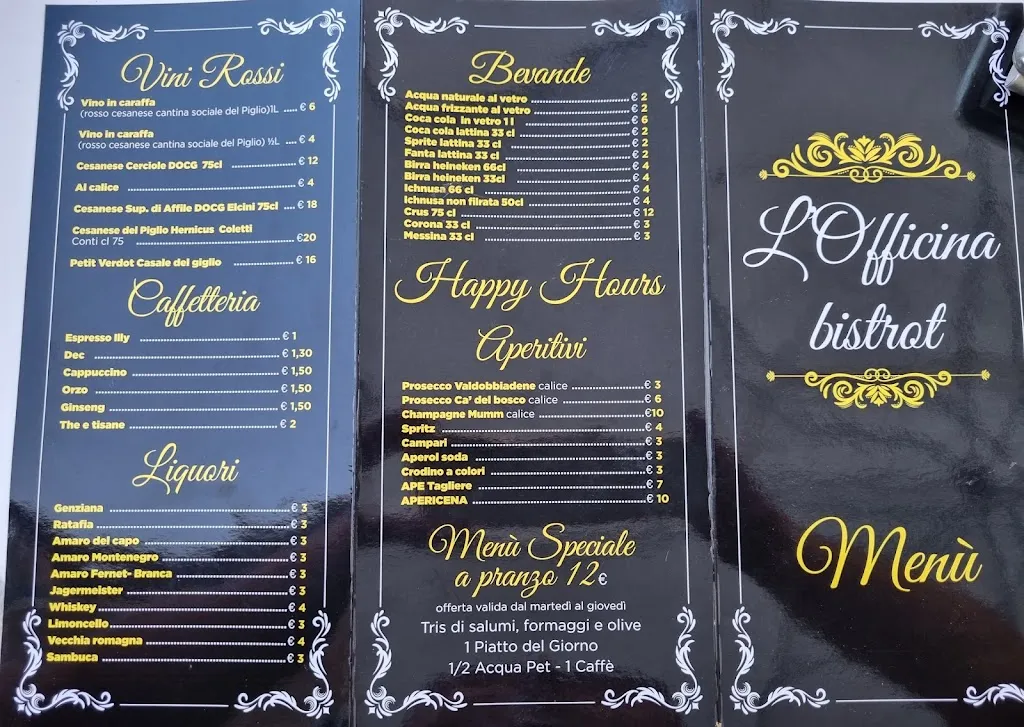 Vini Rossi
Vino in caraffa
(rosso cesanese cantina sociale del Piglio)1L ..... € 6
Vino in caraffa
(rosso cesanese cantina sociale del Piglio) ½L .... € 4
Cesanese Cerciole DOCG 75cl ..... € 12
Al calice ..... € 4
Cesanese Sup. di Affile DOCG Elcini 75cl .... € 18
Cesanese del Piglio Hernicus Coletti
Conti cl 75 ..... €20
Petit Verdot Casale del giglio ..... € 16
Caffetteria
Espresso Illy ..... € 1
Dec ..... € 1,30
Cappuccino ..... € 1,50
Orzo ..... € 1,50
Ginseng ..... € 1,50
The e tisane ..... € 2
Liquori
Genziana ..... € 3
Ratafia ..... € 3
Amaro del capo ..... € 3
Amaro Montenegro ..... € 3
Amaro Fernet- Branca ..... € 3
Jagermeister ..... € 3
Whiskey ..... € 4
Limoncello ..... € 3
Vecchia romagna ..... € 4
Sambuca ..... € 3
Bevande
Acqua naturale al vetro ..... € 2
Acqua frizzante al vetro ..... € 2
Coca cola In vetro 1 l ..... € 6
Coca cola lattina 33 cl ..... € 2
Sprite lattina 33 cl ..... € 2
Fanta lattina 33 cl ..... € 2
Birra heineken 66cl ..... € 4
Birra heineken 33cl ..... € 4
Ichnusa 66 cl ..... € 4
Ichnusa non filrata 50cl ..... € 4
Crus 75 cl ..... € 12
Corona 33 cl ..... € 3
Messina 33 cl ..... € 3
Happy Hours
Aperitivi
Prosecco Valdobbiadene calice ..... € 3
Prosecco Ca' del bosco calice ..... € 6
Champagne Mumm calice ..... €10
Spritz ..... € 4
Campari ..... € 3
Aperol soda ..... € 3
Crodino a colori ..... € 3
APE Tagliere ..... € 7
APERICENA ..... € 10
Menù Speciale
a pranzo 12€
offerta valida dal martedì al giovedì
Tris di salumi, formaggi e olive
1 Piatto del Giorno
1/2 Acqua Pet - 1 Caffè
L'Officina
bistrot
Menù